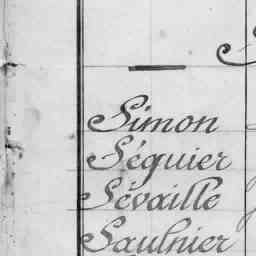 Simon
Séguier
Sévaille
Saulnier